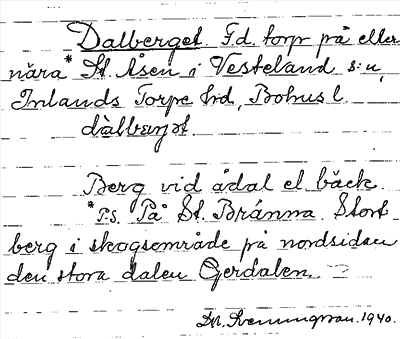 Dalberget. F.d. torp på eller
nära * St. Åsen i Vesteland s:n,
Inlands Torpe hd, Bohusl.
dàlbærjət.
Berg vid ådal el. bäck.
* P.S. På St. Bränna. Stort
berg i skogsområde på nordsidan
den stora dalen Gerdalen.
Dn. Svenungsson. 1940.